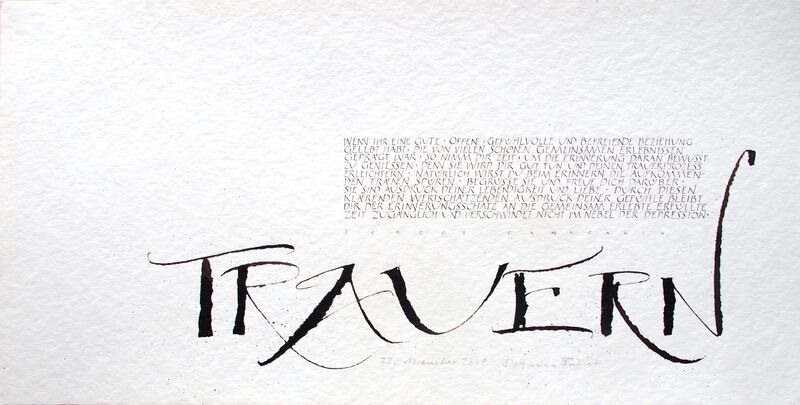 WENN IHR EINE GUTE · OFFENE · GEFÜHLVOLLE UND BEFREIENDE BEZIEHUNG
GELEBT HABT · DIE VON VIELEN SCHÖNEN GEMEINSAMEN ERLEBNISSEN
GEPRÄGT WAR · SO NIMM DIR ZEIT · UM DIE ERINNERUNG DARAN BEWUSST
ZU GENIESSEN · DENN SIE WIRD DIR GUT TUN UND DEINEN TRAUERPROZESS
ERLEICHTERN · NATÜRLICH WIRST DU BEIM ERINNERN DIE AUFKOMMEN-
DEN TRÄNEN SPÜREN · BEGRÜSSE SIE UND FREU DICH DARÜBER ·
SIE SIND AUSDRUCK DEINER LEBENDIGKEIT UND LIEBE · DURCH DIESEN
KLÄRENDEN WERTSCHÄTZENDEN AUSDRUCK DEINER GEFÜHLE BLEIBT
DIR DER ERINNERUNGSSCHATZ AN DIE GEMEINSAM ERLEBTE ERFÜLLTE
ZEIT ZUGÄNGLICH UND VERSCHWINDET NICHT IM NEBEL DER DEPRESSION ·
JORGOS CANACAKIS
TRAUERN
22. November